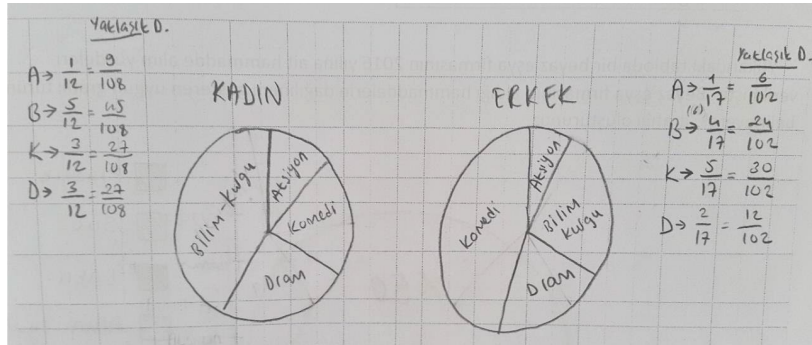 Yaklaşık D.
A → 1/12 = 9/108
B → 5/12 = 45/108
K → 3/12 = 27/108
D → 3/12 = 27/108
KADIN
Bilim-kurgu
Aksiyon
Komedi
Dram
ERKEK
Komedi
Aksiyon
Bilim
kurgu
Dram
Yaklaşık D.
A → 1/17 = 6/102
(6)
B → 4/17 = 24/102
K → 5/17 = 30/102
D → 2/17 = 12/102